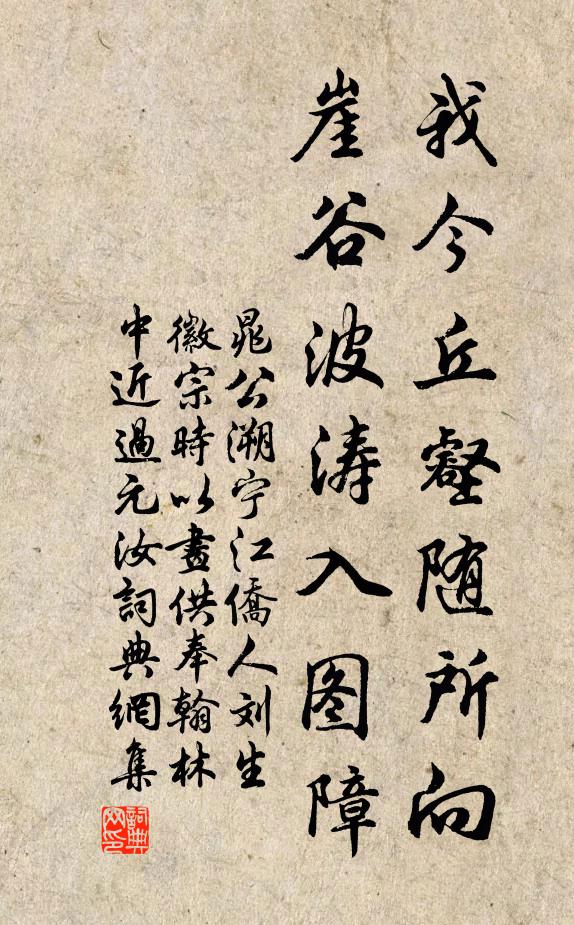 我今丘壑随所向
崖谷波涛入图障
晁公溯宁江僑人刘生
徽宗時以畫供奉翰林
中近過元汝詞典網集
詞典
网印